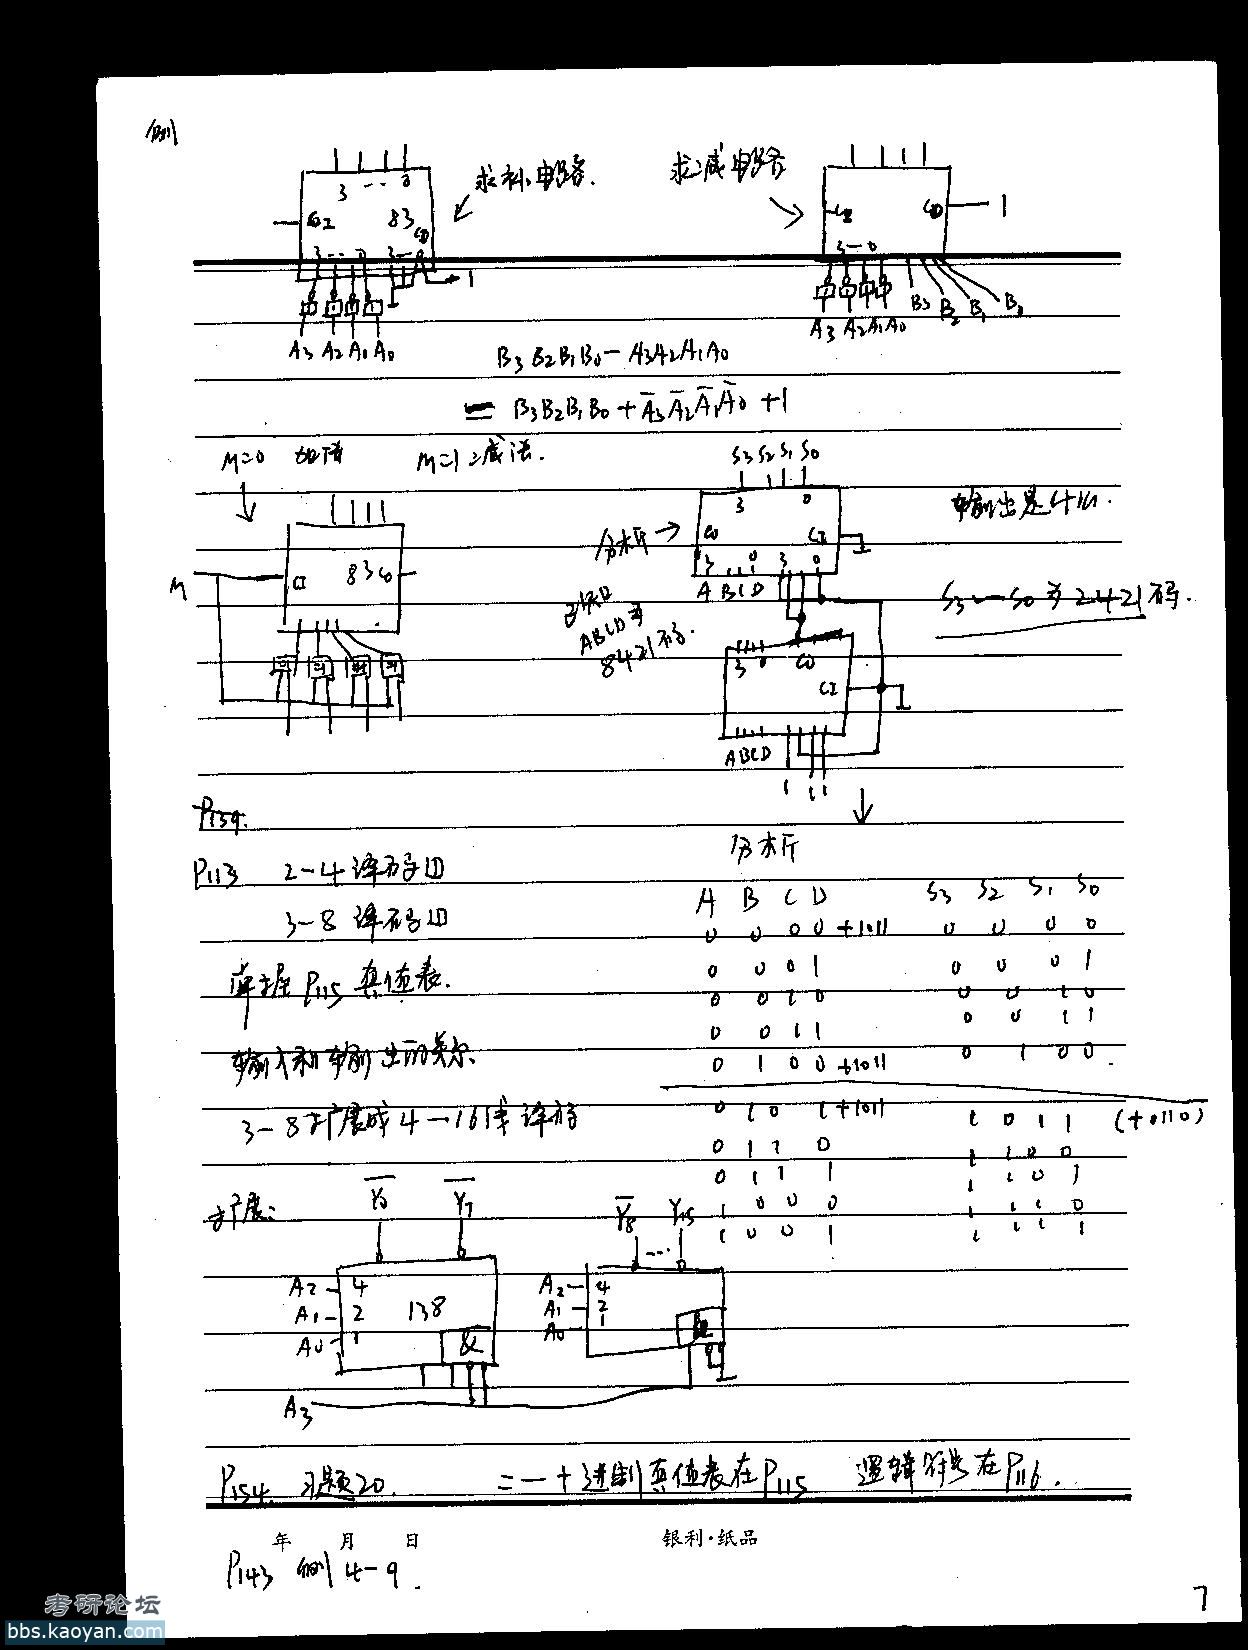 例
求补电路.
求减电路
3 -- 0
CI 83 CO
3 -- 0 3 - 0
1
A3 A2 A1 A0
CI CO 1
3 - 0
A3 A2 A1 A0 B3 B2 B1 B0
B3B2B1B0 - A3A2A1A0
= B3B2B1B0 + A̅3A̅2A̅1A̅0 + 1
M=0 加法 M=1 减法.
M
CI 83 CO
S3 S2 S1 S0
3 0
分析 →
CO CI
3 0 3 0
A B C D
输出是什么.
已知
ABCD为
8421码.
S3 — S0 为 2421码.
3 0 CO
CI
ABCD
1 1 1
P139.
分析
P113 2-4译码器
3-8译码器
掌握P115真值表.
输入和输出的关系.
3-8扩展成4-16线译码
A B C D S3 S2 S1 S0
0 0 0 0 +1011 0 0 0 0
0 0 0 1 0 0 0 1
0 0 1 0 0 0 1 0
0 0 1 1 0 0 1 1
0 1 0 0 +1011 0 1 0 0
0 1 0 1 +1011 1 0 1 1 (+0110)
0 1 1 0 1 1 0 0
0 1 1 1 1 1 0 1
1 0 0 0 1 1 1 0
1 0 0 1 1 1 1 1
扩展:
Y̅0 Y̅7
Y̅8 ... Y̅15
A2 4
A1 2 138
A0 1
&
A2 4
A1 2
A0 1
&
A3
P154 习题20. 二-十进制真值表在P115 逻辑符号在P116.
年 月 日
银利·纸品
P143 例4-9.
7
考研论坛
bbs.kaoyan.com